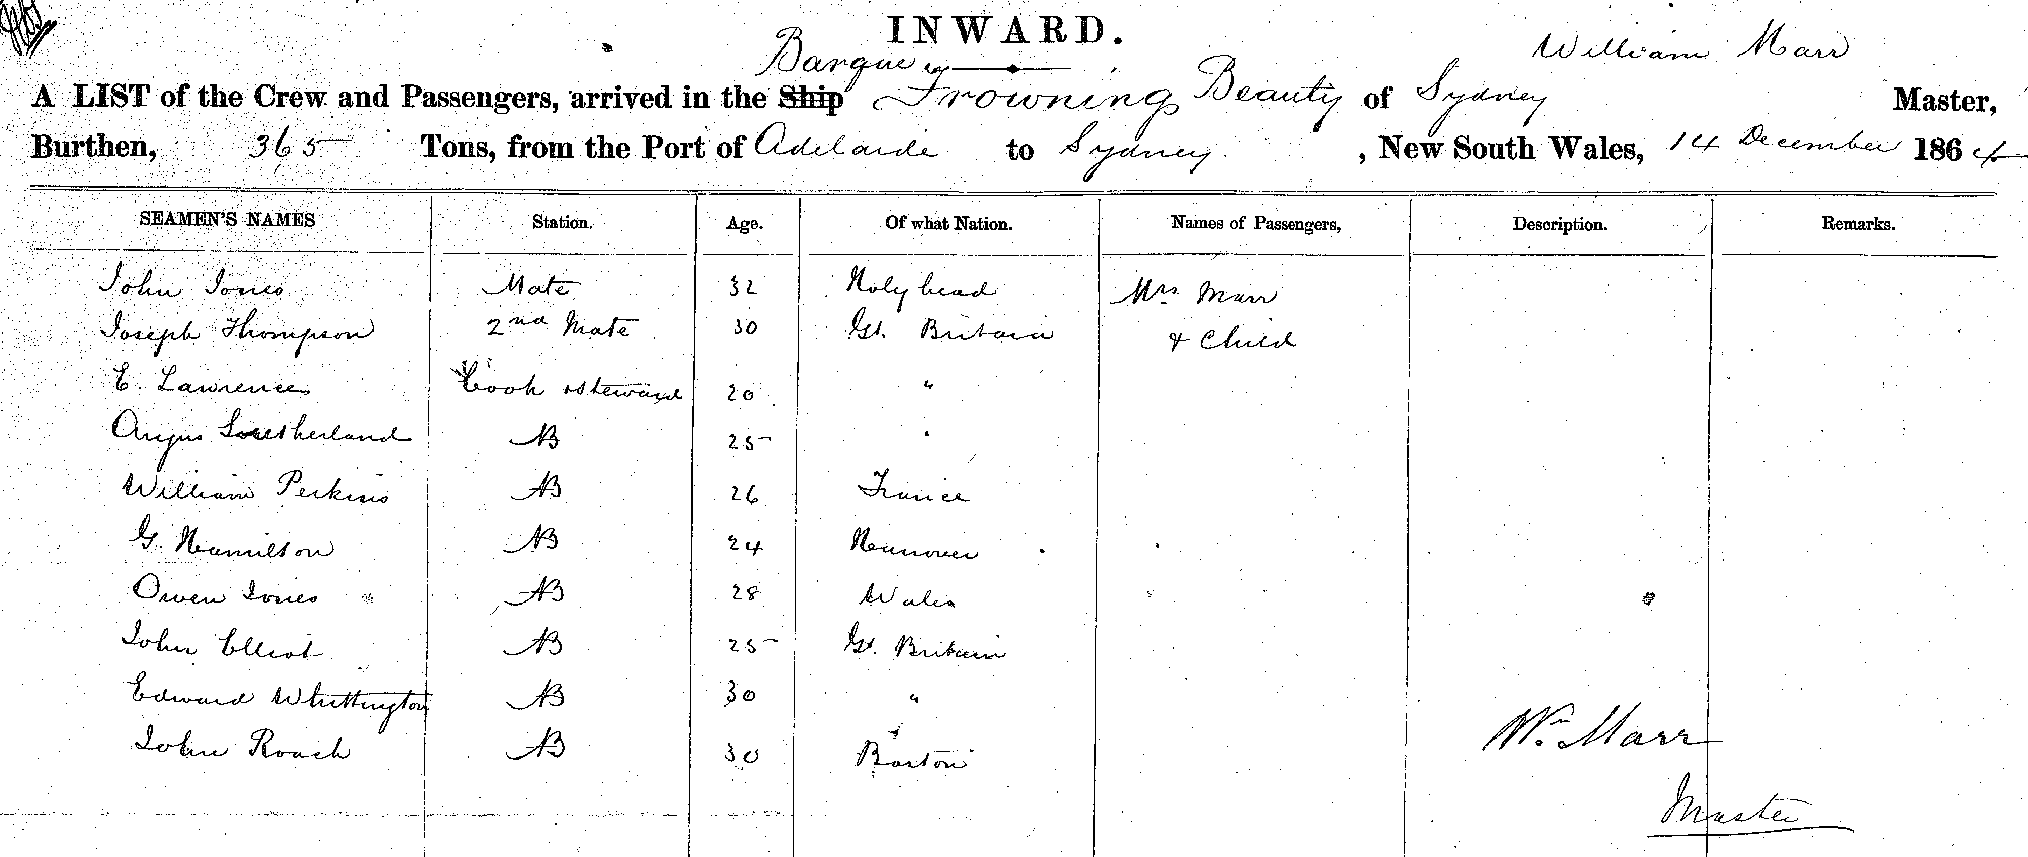 INWARD.
Barque William Marr
A LIST of the Crew and Passengers, arrived in the Ship Frowning Beauty of Sydney Master,
Burthen, 365 Tons, from the Port of Adelaide to Sydney, New South Wales, 14 December 1864
SEAMEN'S NAMES Station. Age. Of what Nation. Names of Passengers, Description. Remarks.
John Jones Mate 32 Holyhead Mrs Marr
Joseph Thompson 2nd Mate 30 Gt. Britain & Child
E. Lawrence Cook & Steward 20 "
Angus Sutherland AB 25 "
William Perkins AB 26 France
G. Hamilton AB 24 Hanover
Owen Jones AB 28 Wales
John Elliot AB 25 Gt. Britain
Edward Whittington AB 30 "
John Roach AB 30 Boston
Wm. Marr
Master